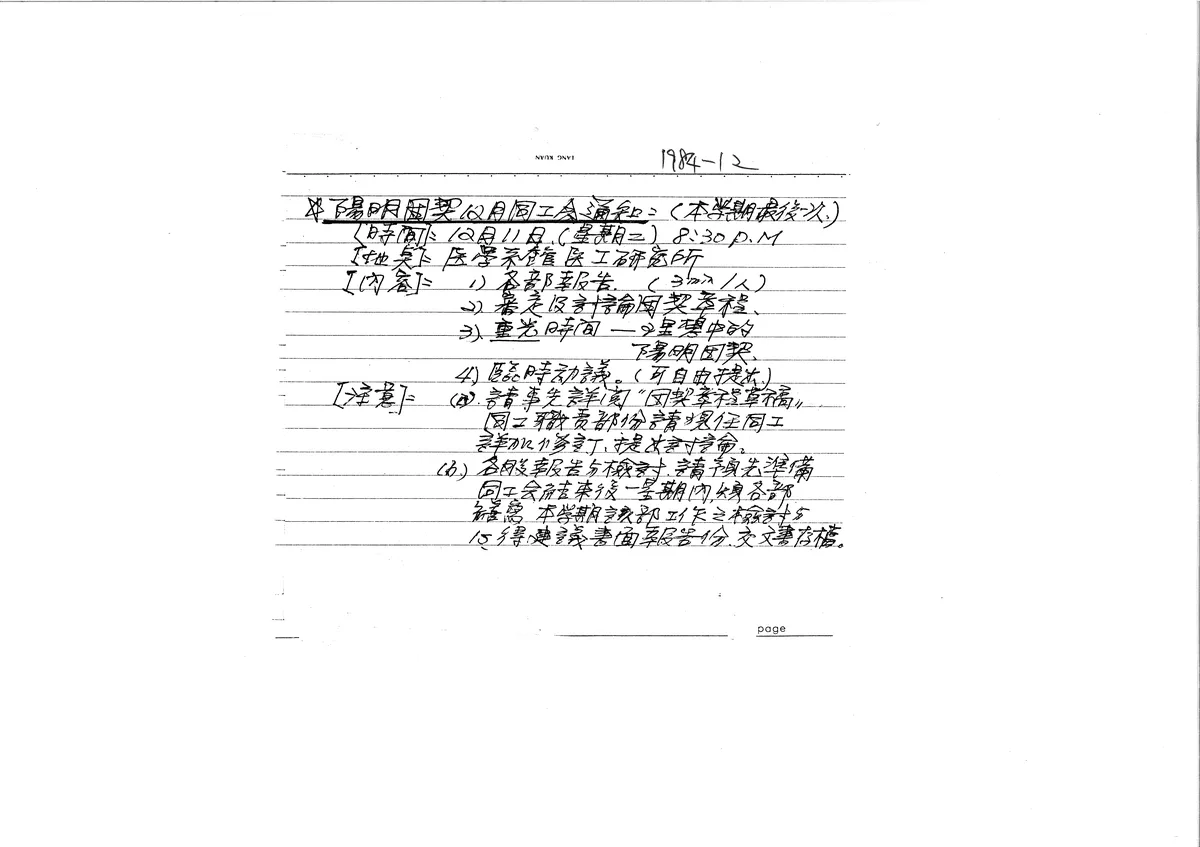 LANG KUAN
1984-12
※陽明團契12月同工会通知：（本学期最後一次.）
[時間]：12月11日.（星期二）8:30 P.M
[地點]：医學系館医工研究所
[內容]： 1) 各部報告.（3min/人）
2) 審定及討論團契章程.
3) 重光時間 —→ 異想中的
陽明团契.
4) 臨時动議。（可自由提出.）
[注意]： (a). 請事先詳閱“团契章程草稿”
同工職責部份請現任同工
詳加修訂、提出討論。
(b.) 各股報告与檢討.請預先準備
同工会結束後一星期內,須各部
繕寫 本学期該部工作之檢討与
心得.建議書面報告1份.交文書存檔。
page